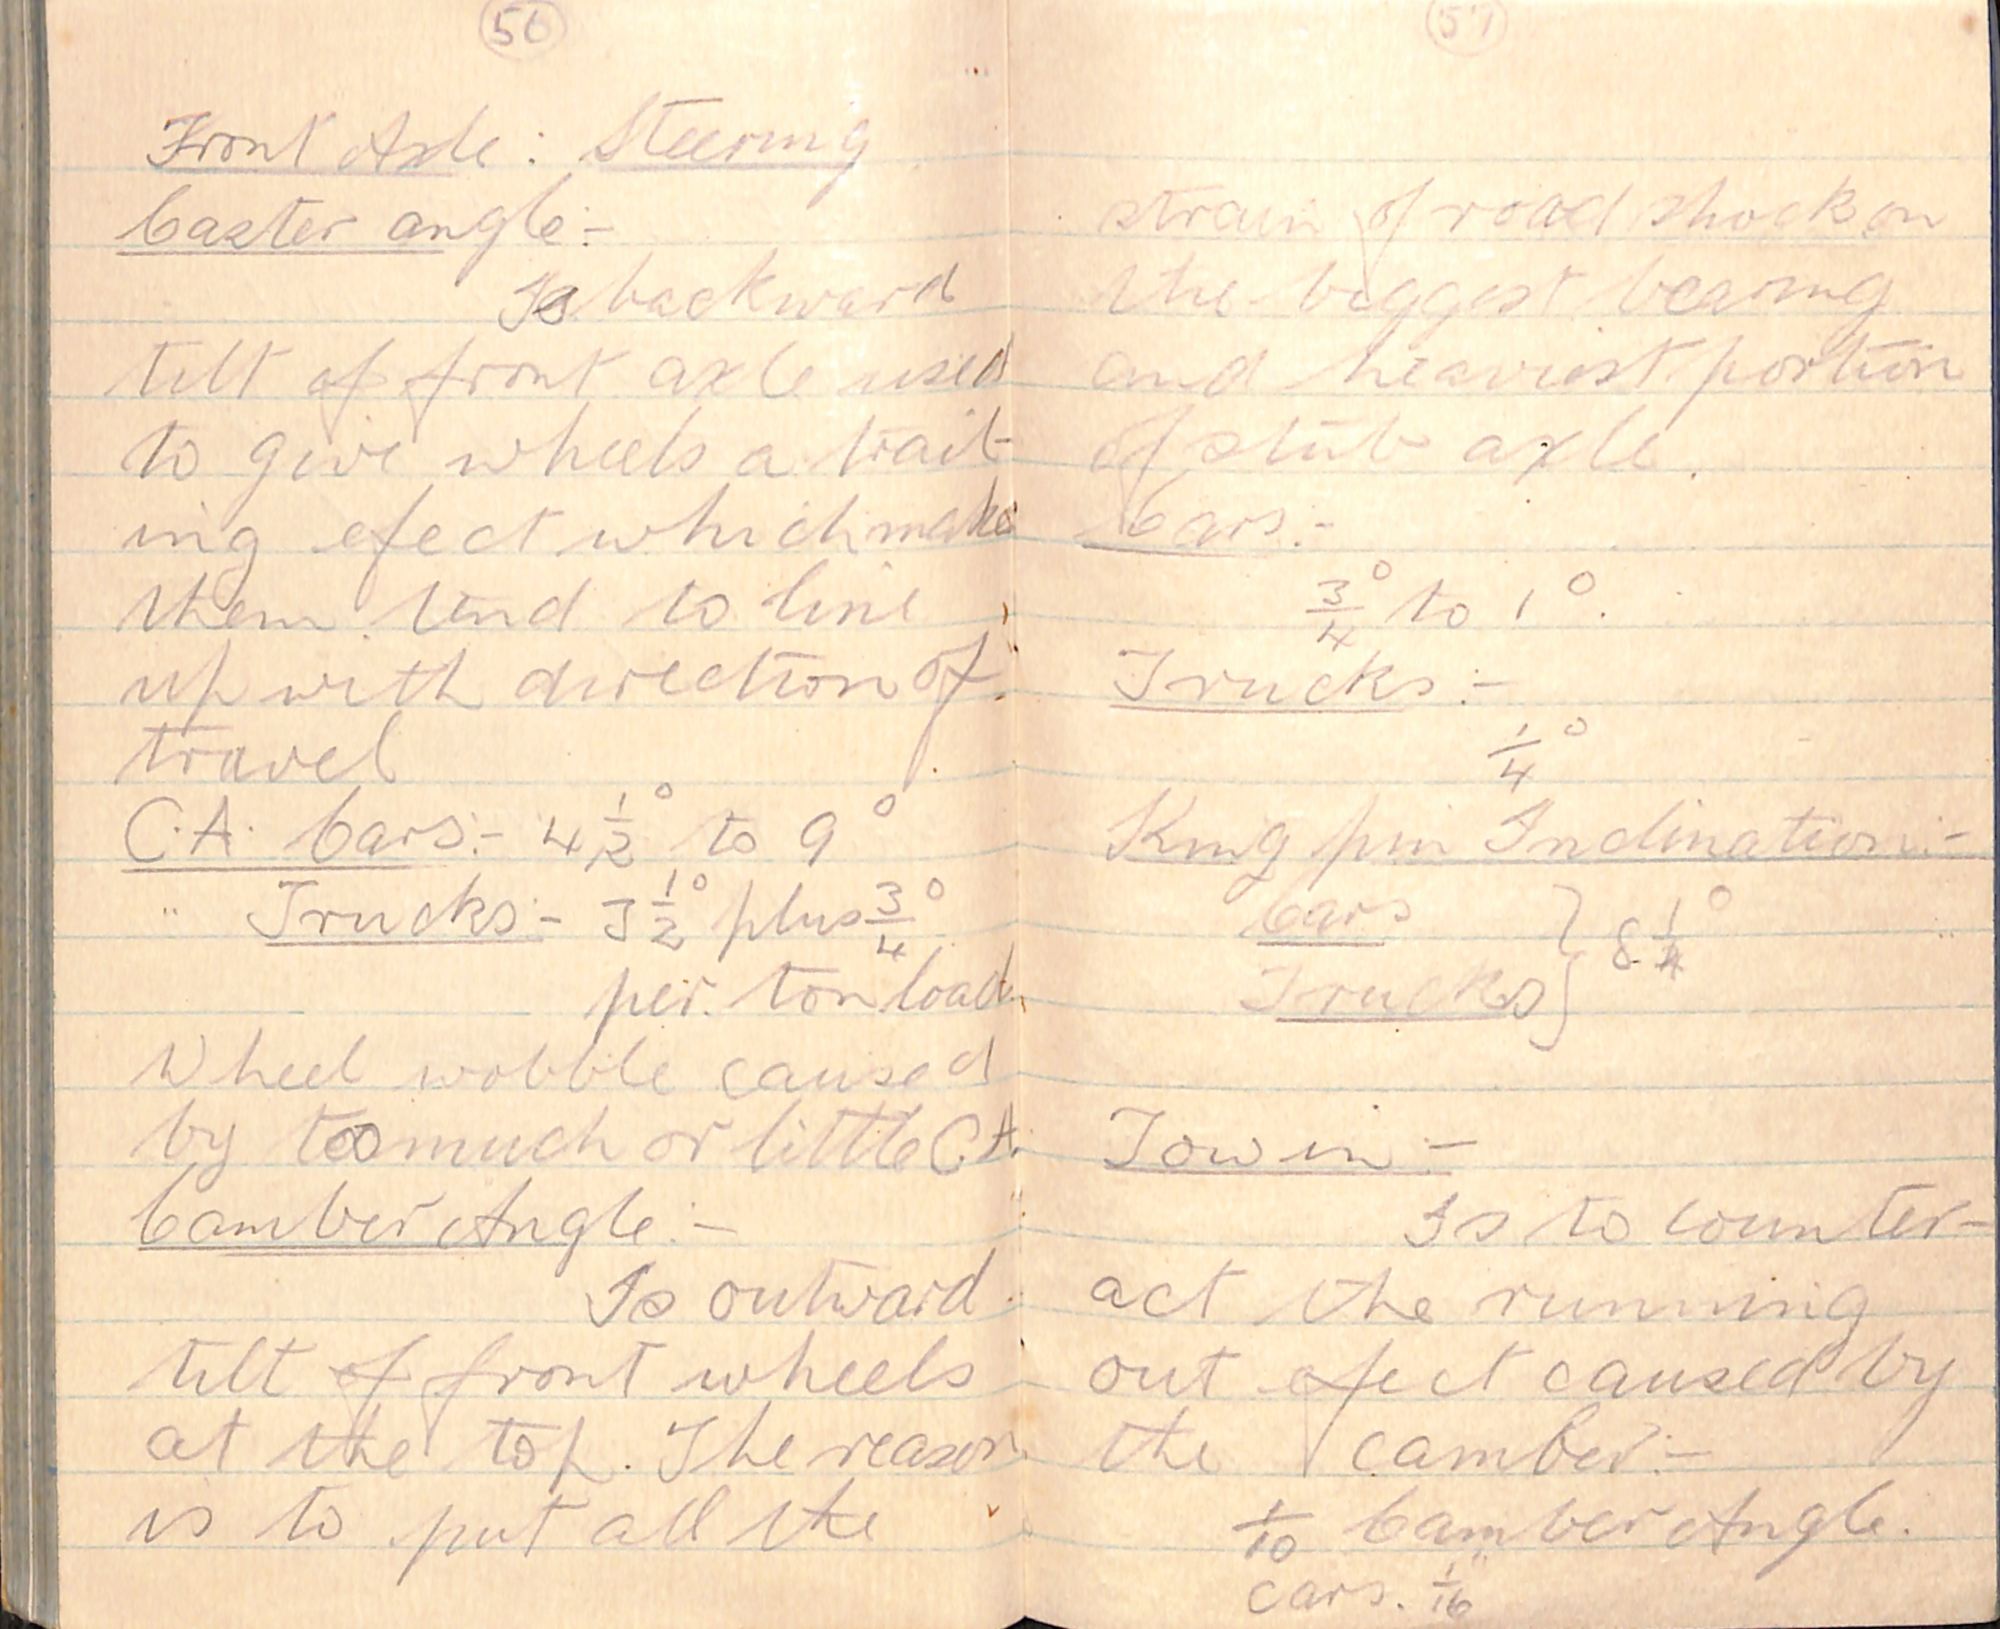 56
Front Axle: Steering
Caster angle:-
Is backward
tilt of front axle used
to give wheels a trail-
ing efect which make
them tend to line
up with direction of
travel
C.A. Cars:- 4 1/2° to 9°
" Trucks:- 3 1/2° plus 3/4°
per. ton load
Wheel wobble caused
by too much or little C.A.
Camber Angle:-
Is outward
tilt of front wheels
at the top. The reason
is to put all the
57
strain of road shock on
the biggest bearing
and heaviest portion
of stub axle.
Cars:-
3/4° to 1°.
Trucks:-
1/4°
King pin Inclination:-
Cars
Trucks } 8 1/4°
Tow in:-
Is to counter-
act the running
out efect caused by
the camber:-
1/10 Camber Angle.
cars. 1/16"